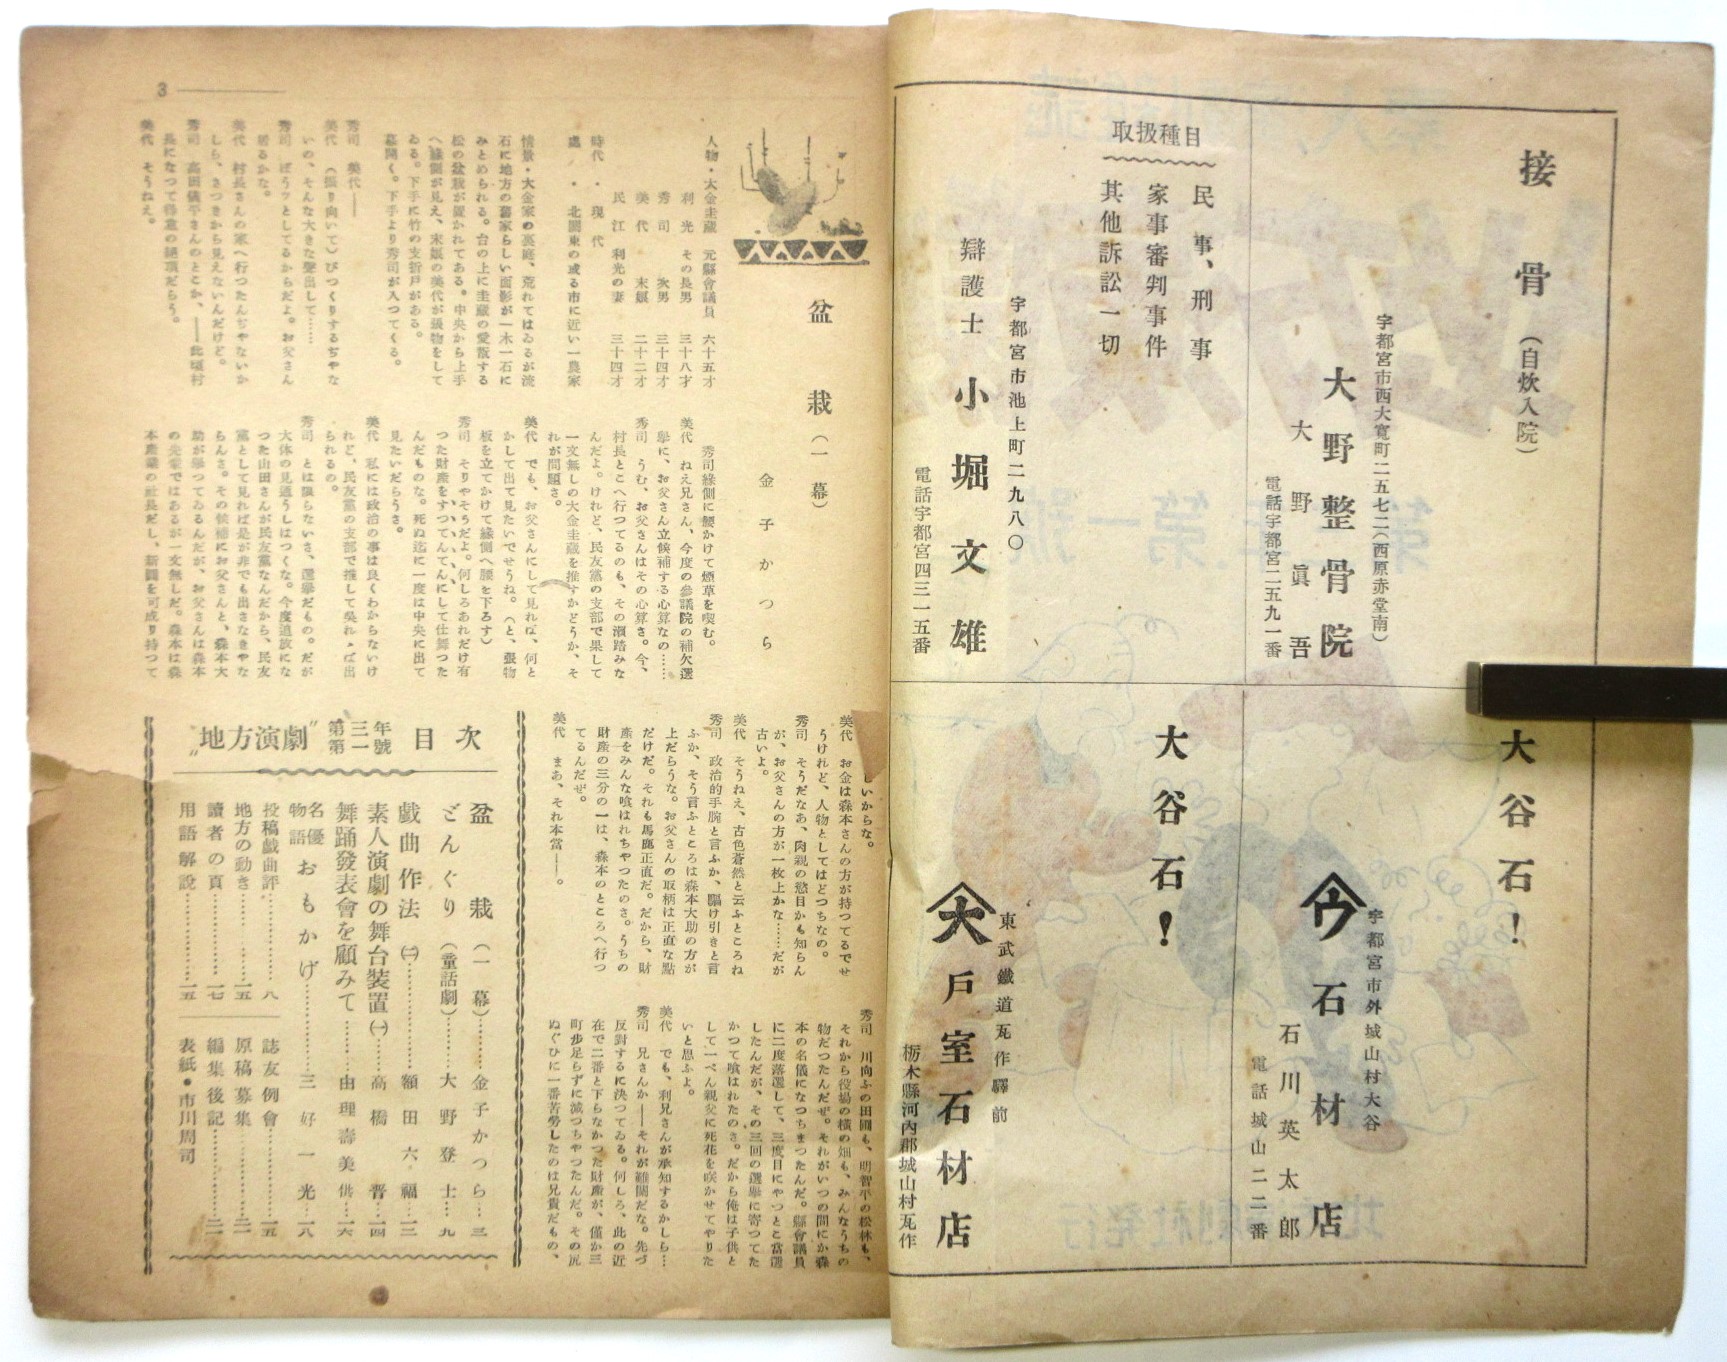 接骨（自炊入院）
宇都宮市西大寛町二五七二（西原赤堂南）
大野整骨院
大野眞吾
電話宇都宮二五九一番
取扱種目
民事、刑事
家事審判事件
其他訴訟一切
宇都宮市池上町二九八〇
辯護士 小堀文雄
電話宇都宮四三一五番
大谷石！
宇都宮市外城山村大谷
ウ石材店
石川英太郎
電話城山二二番
大谷石！
東武鐵道瓦作驛前
大戶室石材店
栃木縣河內郡城山村瓦作
3
盆栽（一幕）
金子かつら
人物・大金圭蔵 元縣會議員 六十五才
利光 その長男 三十八才
秀司 次男 三十四才
美代 末娘 二十二才
民江 利光の妻 三十四才
時代・現代
處・北關東の或る市に近い一農家
情景・大金家の裏庭、荒れてはゐるが流
石に地方の舊家らしい面影が一木一石に
みとめられる。台の上に圭蔵の愛翫する
松の盆栽が置かれてある。中央から上手
へ緣側が見え、末娘の美代が張物をして
ゐる。下手に竹の支折戸がある。
幕開く。下手より秀司が入つてくる。
秀司 美代――
美代 （振り向いて）びつくりするぢやな
いの、そんな大きな聲出して……
秀司 ぼうツとしてるからだよ。お父さん
居るかな。
美代 村長さんの家へ行つたんぢやないか
しら、さつきから見えないんだけど。
秀司 高田儀平さんのとこか、――此頃村
長になつて得意の絕頂だらう。
美代 そうねえ。
秀司緣側に腰かけて煙草を喫む。
美代 ねえ兄さん、今度の參議院の補欠選
擧に、お父さん立候補する心算なの……
秀司 うむ、お父さんはその心算さ。今、
村長とこへ行つてるのも、その瀬踏みな
んだよ。けれど、民友黨の支部で果して
一文無しの大金圭蔵を推すかどうか、そ
れが問題さ。
美代 でも、お父さんにして見れば、何と
かして出て見たいでせうね。（と、張物
板を立てかけて緣側へ腰を下ろす）
秀司 そりやそうだよ。何しろあれだけ有
つた財產をすつてんてんにして仕舞つた
んだものな。死ぬ迄に一度は中央に出て
見たいだらうさ。
美代 私には政治の事は良くわからないけ
れど、民友黨の支部で推して吳れゝば出
られるの。
秀司 とは限らないさ、選擧だもの。だが
大体の見通うしはつくな。今度追放にな
つた山田さんが民友黨なんだから、民友
黨として見れば是が非でも出さなきやな
らんさ。その候補にお父さんと、森本大
助が擧つてゐるんだが、お父さんは森本
の先輩ではあるが一文無しだ。森本は森
本產業の社長だし、新圓を可成り持つて
しいからな。
美代 お金は森本さんの方が持つてるでせ
うけれど、人物としてはどつちなの。
秀司 そうだなあ、肉親の慾目かも知らん
が、お父さんの方が一枚上かな……だが
古いよ。
美代 そうねえ、古色蒼然と云ふところね
秀司 政治的手腕と言ふか、驅け引きと言
ふか、そう言ふところは森本大助の方が
上だらうな。お父さんの取柄は正直な點
だけだ。それも馬鹿正直だ。だから、財
產をみんな喰はれちやつたのさ。うちの
財產の三分の一は、森本のところへ行つ
てるんだぜ。
美代 まあ、それ本當――。
秀司 川向ふの田圃も、明智平の松林も、
それから役場の橫の畑も、みんなうちの
物だつたんだぜ。それがいつの間にか森
本の名儀になつちまつたんだ。縣會議員
に二度落選して、三度目にやつとこ當選
したんだが、その三回の選擧に寄つてた
かつて喰はれたのさ。だから俺は子供と
して一ぺん親父に死花を咲かせてやりた
いと思ふよ。
美代 でも、利兄さんが承知するかしら…
秀司 兄さんか――それが難關だな。先づ
反對するに決つてゐる。何しろ、此の近
在で二番と下らなかつた財產が、僅か三
町步足らずに減つちやつたんだ。その尻
ぬぐひに一番苦勞したのは兄貴だもの、
〝地方演劇〟第三年第一號 目次
盆栽（一幕）………金子かつら…三
どんぐり（童話劇）………大野登士…九
戲曲作法㈡………額田六福…三
素人演劇の舞台裝置㈠……高橋晋…一四
舞踊發表會を顧みて……由理壽美供…一六
名優物語 おもかげ………三好一光…一八
投稿戲曲評………八
地方の動き………一五
讀者の頁………一七
用語解說………一五
誌友例會………一五
原稿募集………二一
編集後記………二一
表紙●市川周司